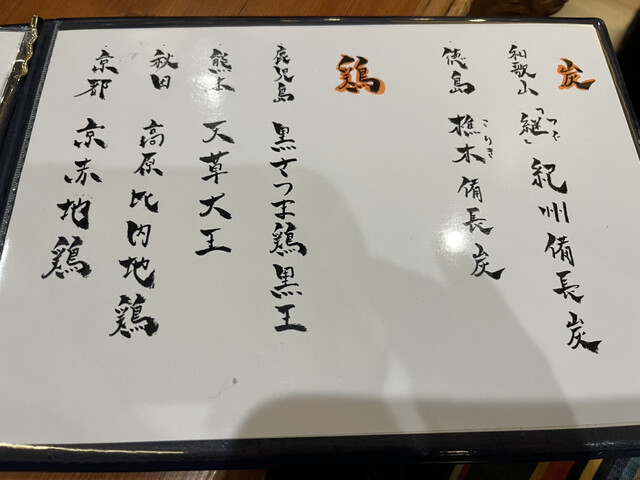 炭
和歌山 「継」つぐ 紀州備長炭
徳島 樵木こりき 備長炭
鶏
鹿児島 黒さつま鶏黒王
熊本 天草大王
秋田 高原比内地鶏
京都 京赤地鶏